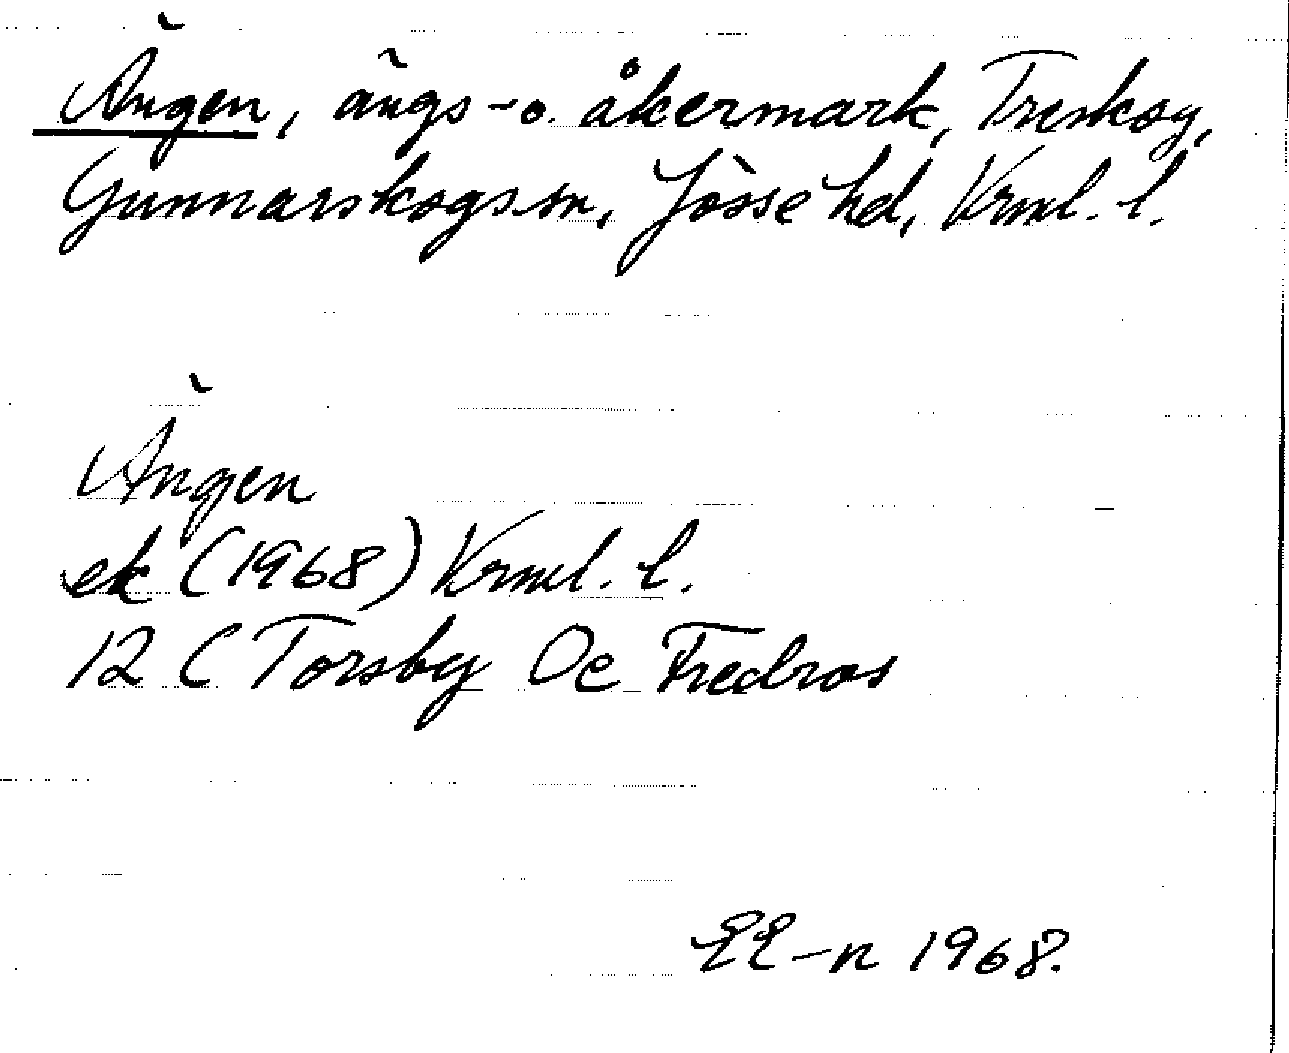 Ängen, ängs- o. åkermark, Treskog,
Gunnarskogs sn, Jösse hd, Vrml. l.
Ängen
ek (1968) Vrml. l.
12 C Torsby 0e Fredros
EE-n 1968.